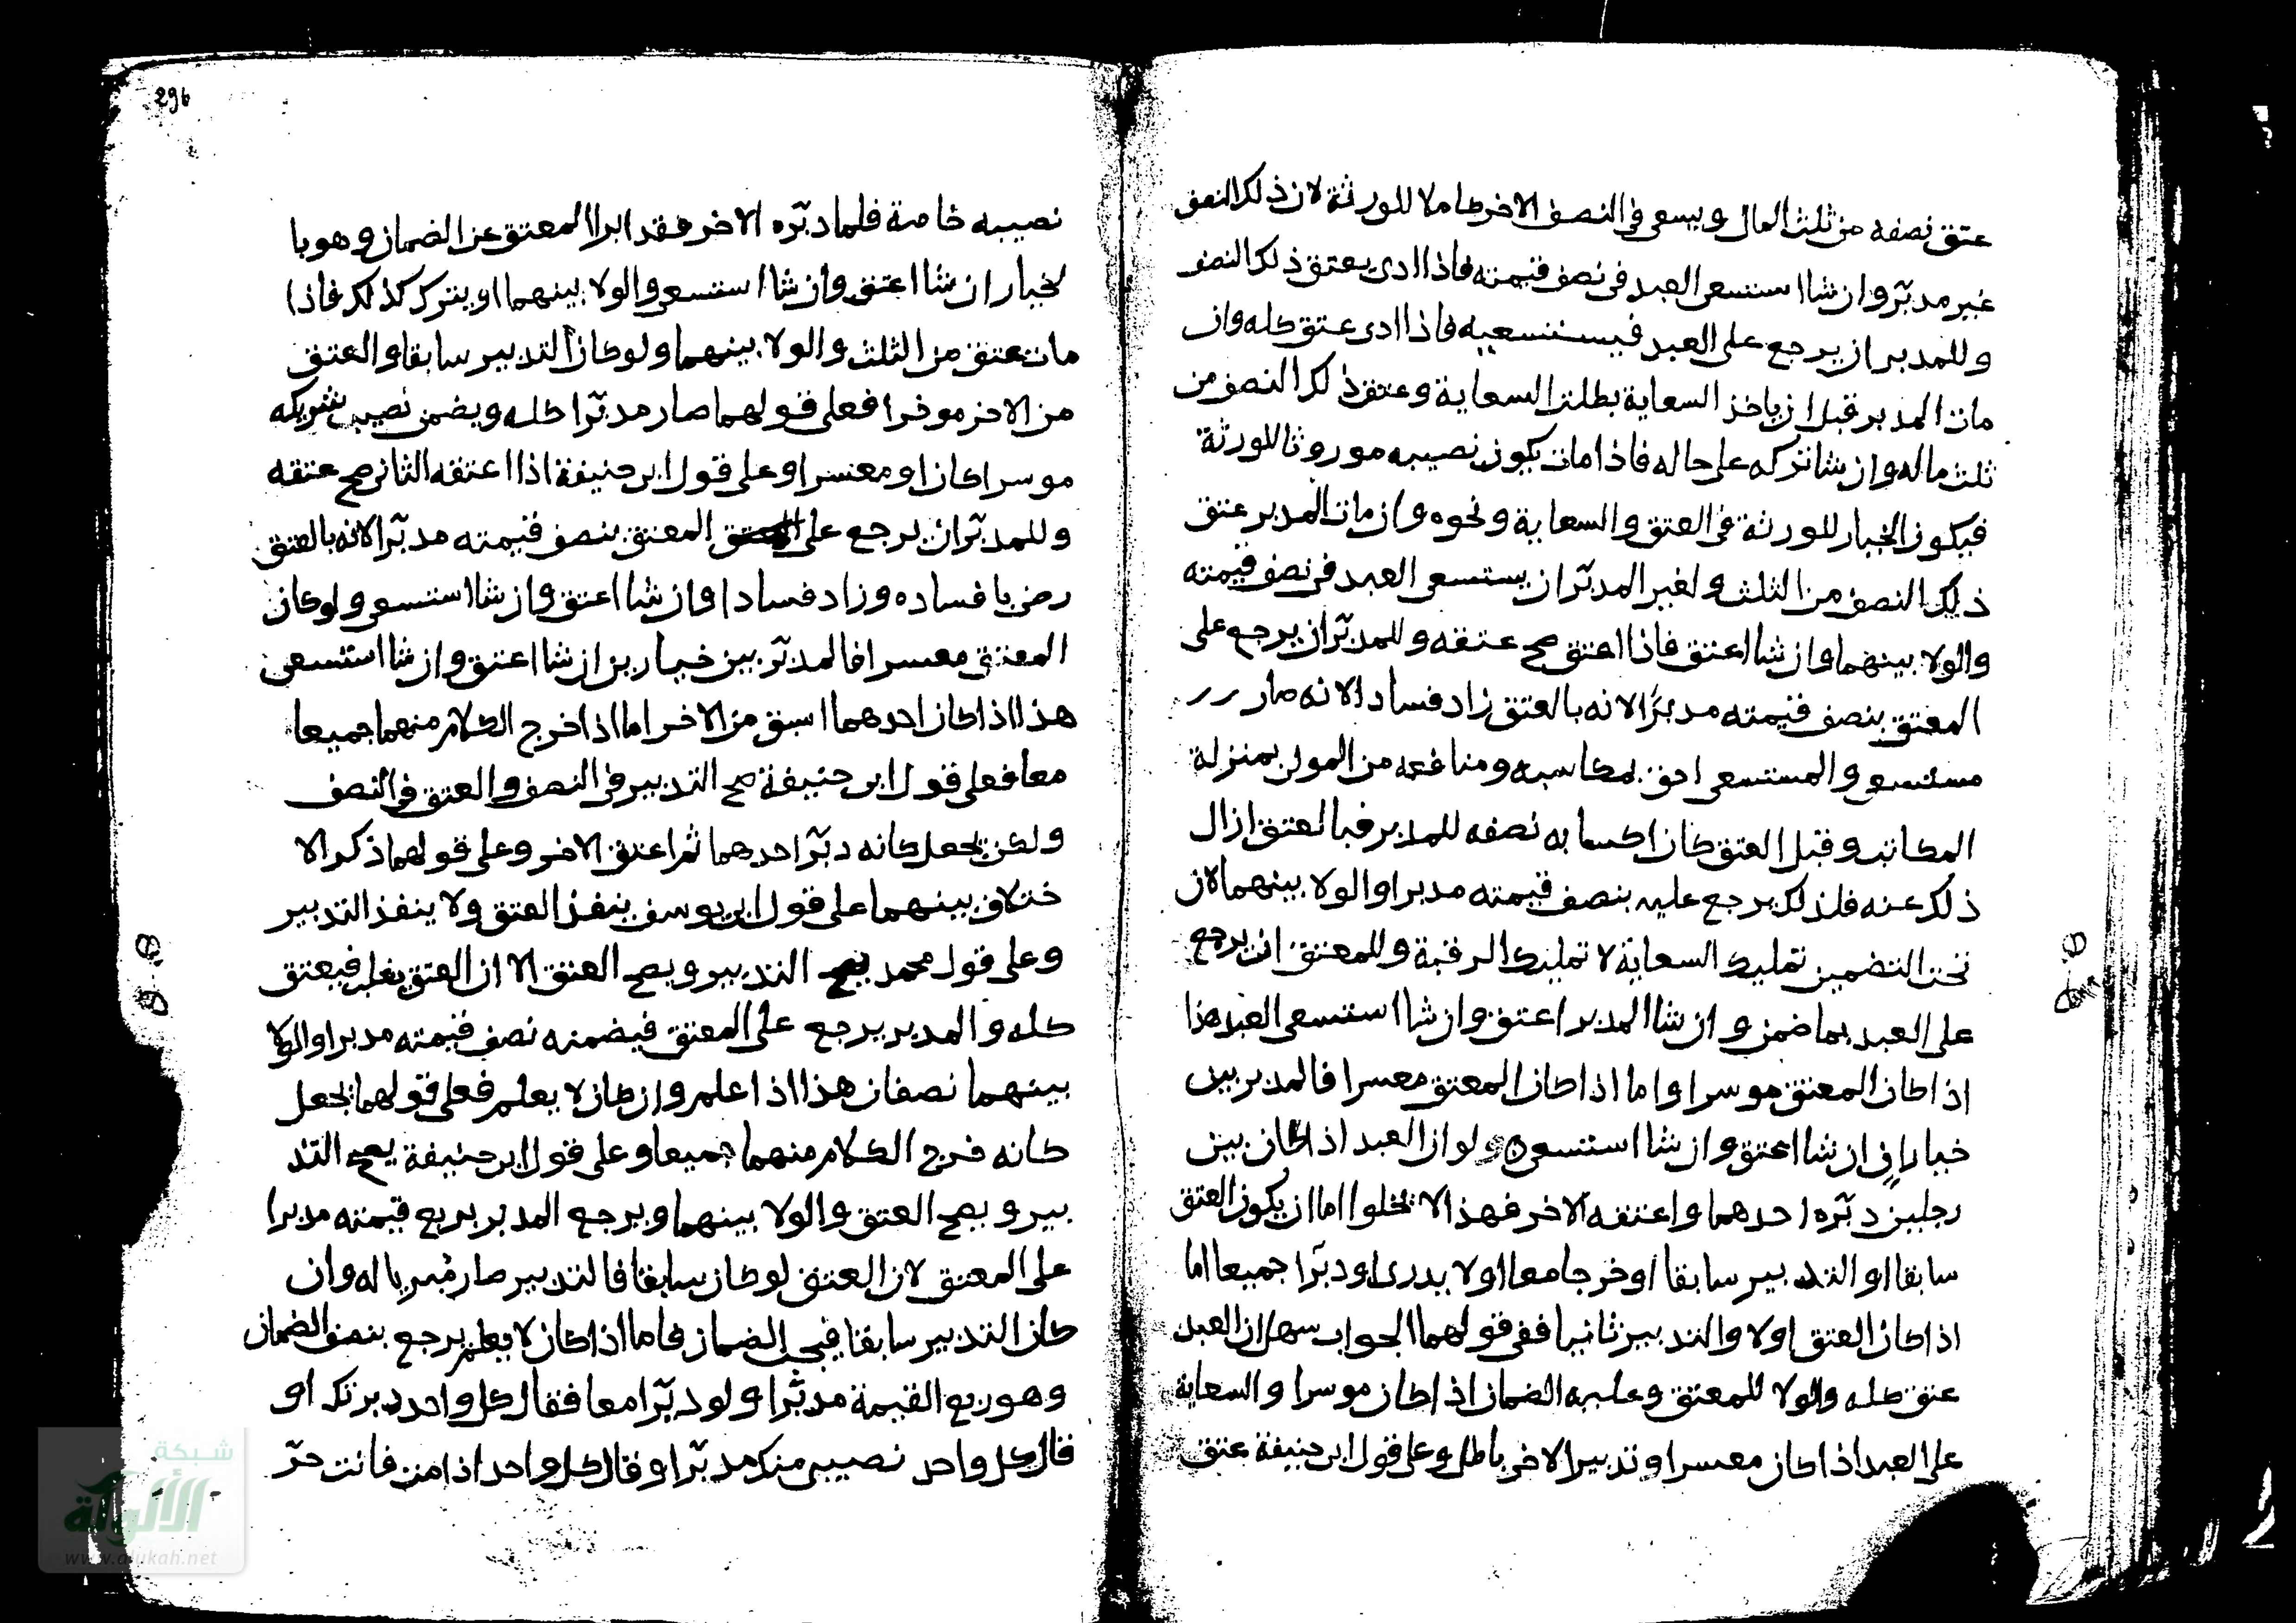 عتق نصفه من ثلث المال ويسعى في النصف الاخر كاملا للورثة لان ذلك النصف
غير مدبّر وان شا استسعى العبد في نصف قيمته فاذا ادى يعتق ذلك النصف
وللمدبر ان يرجع على العبد فيستسعيه فاذا ادى عتق كله وان
مات المدبر قبل ان ياخذ السعاية بطلت السعاية وعتق ذلك النصف من
ثلث ماله وان شا تركه على حاله فاذا مات يكون نصيبه موروثا للورثة
فيكون الخيار للورثة في العتق والسعاية ونحوه وان مات المدبر عتق
ذلك النصف من الثلث ولغير المدبّر ان يستسعى العبد في نصف قيمته
والولا بينهما وان شا اعتق فاذا اعتق صح عتقه وللمدبّر ان يرجع على
المعتق بنصف قيمته مدبّرا لانه بالعتق زاد فسادا لانه صار
مستسعى والمستسعى احق بمكاسبه ومنافعه من المولى بمنزلة
المكاتب وقبل العتق كان اكسابه نصفه للمدبر فبالعتق ازال
ذلك عنه فلذلك يرجع عليه بنصف قيمته مدبرا والولا بينهما لان
نحن التضمين تمليك السعاية لا تمليك الرقبة وللمعتق ان يرجع
على العبد بما ضمن وان شا المدبر اعتق وان شا استسعى العبد هذا
اذا كان المعتق موسرا واما اذا كان المعتق معسرا فالمدبر بين
خياران ان شا اعتق وان شا استسعى ولو ان العبد اذا كان بين
رجلين دبّره احدهما واعتقه الاخر فهذا لا يخلوا اما ان يكون العتق
سابقا او التدبير سابقا او خرجا معا او لا يدرى او دبّرا جميعا اما
اذا كان العتق اولا والتدبير ثانيا ففي قولهما الجواب سهل ان العبد
عتق كله والولا للمعتق وعليه الضمان اذا كان موسرا والسعاية
على العبد اذا كان معسرا وتدبير الاخر باطل وعلى قول ابى حنيفة عتق
296
نصيبه خاصة فلما دبّره الاخر فقد ابرا المعتق عن الضمان وهو با
لخيار ان شا اعتق وان شا استسعى والولا بينهما او يترك كذلك فاذا
مات عتق من الثلث والولا بينهما ولو كان التدبير سابقا والعتق
من الاخر موخرا فعلى قولهما صار مدبّرا كله ويضمن نصيب شريكه
موسرا كان او معسرا وعلى قول ابى حنيفة اذا اعتقه الثانى صح عتقه
وللمدبّر ان يرجع على المعتق بنصف قيمته مدبّرا لانه بالعتق
رضى بافساده وزاد فسادا وان شا اعتق وان شا استسعى ولو كان
المعتق معسرا فالمدبّر بين خيارين ان شا اعتق وان شا استسعى
هذا اذا كان احدهما اسبق من الاخر اما اذا خرج الكلام منهما جميعا
معا فعلى قول ابى حنيفة صح التدبير في النصف والعتق في النصف
ولكن يجعل كانه دبّر احدهما ثم اعتق الاخر وعلى قولهما ذكر الا
ختلاف بينهما على قول ابى يوسف ينفذ العتق ولا ينفذ التدبير
وعلى قول محمد يصح التدبير ويصح العتق الا ان العتق يغلب فيعتق
كله والمدبر يرجع على المعتق فيضمنه نصف قيمته مدبرا والولا
بينهما نصفان هذا اذا علم وان كان لا يعلم فعلى قولهما يجعل
كانه خرج الكلام منهما جميعا وعلى قول ابى حنيفة يصح التد
بير ويصح العتق والولا بينهما ويرجع المدبر بربع قيمته مدبرا
على المعتق لان العتق لو كان سابقا فالتدبير صار مبريا له وان
كان التدبير سابقا يجب الضمان فاما اذا كان لا يعلم يرجع بنصف الضمان
وهو ربع القيمة مدبّرا ولو دبّرا معا فقال كل واحد دبرتك او
قال كل واحد نصيبي منك مدبّر او قال كل واحد اذا مت فانت حرّ
شبكة
الألوكة
www.alukah.net